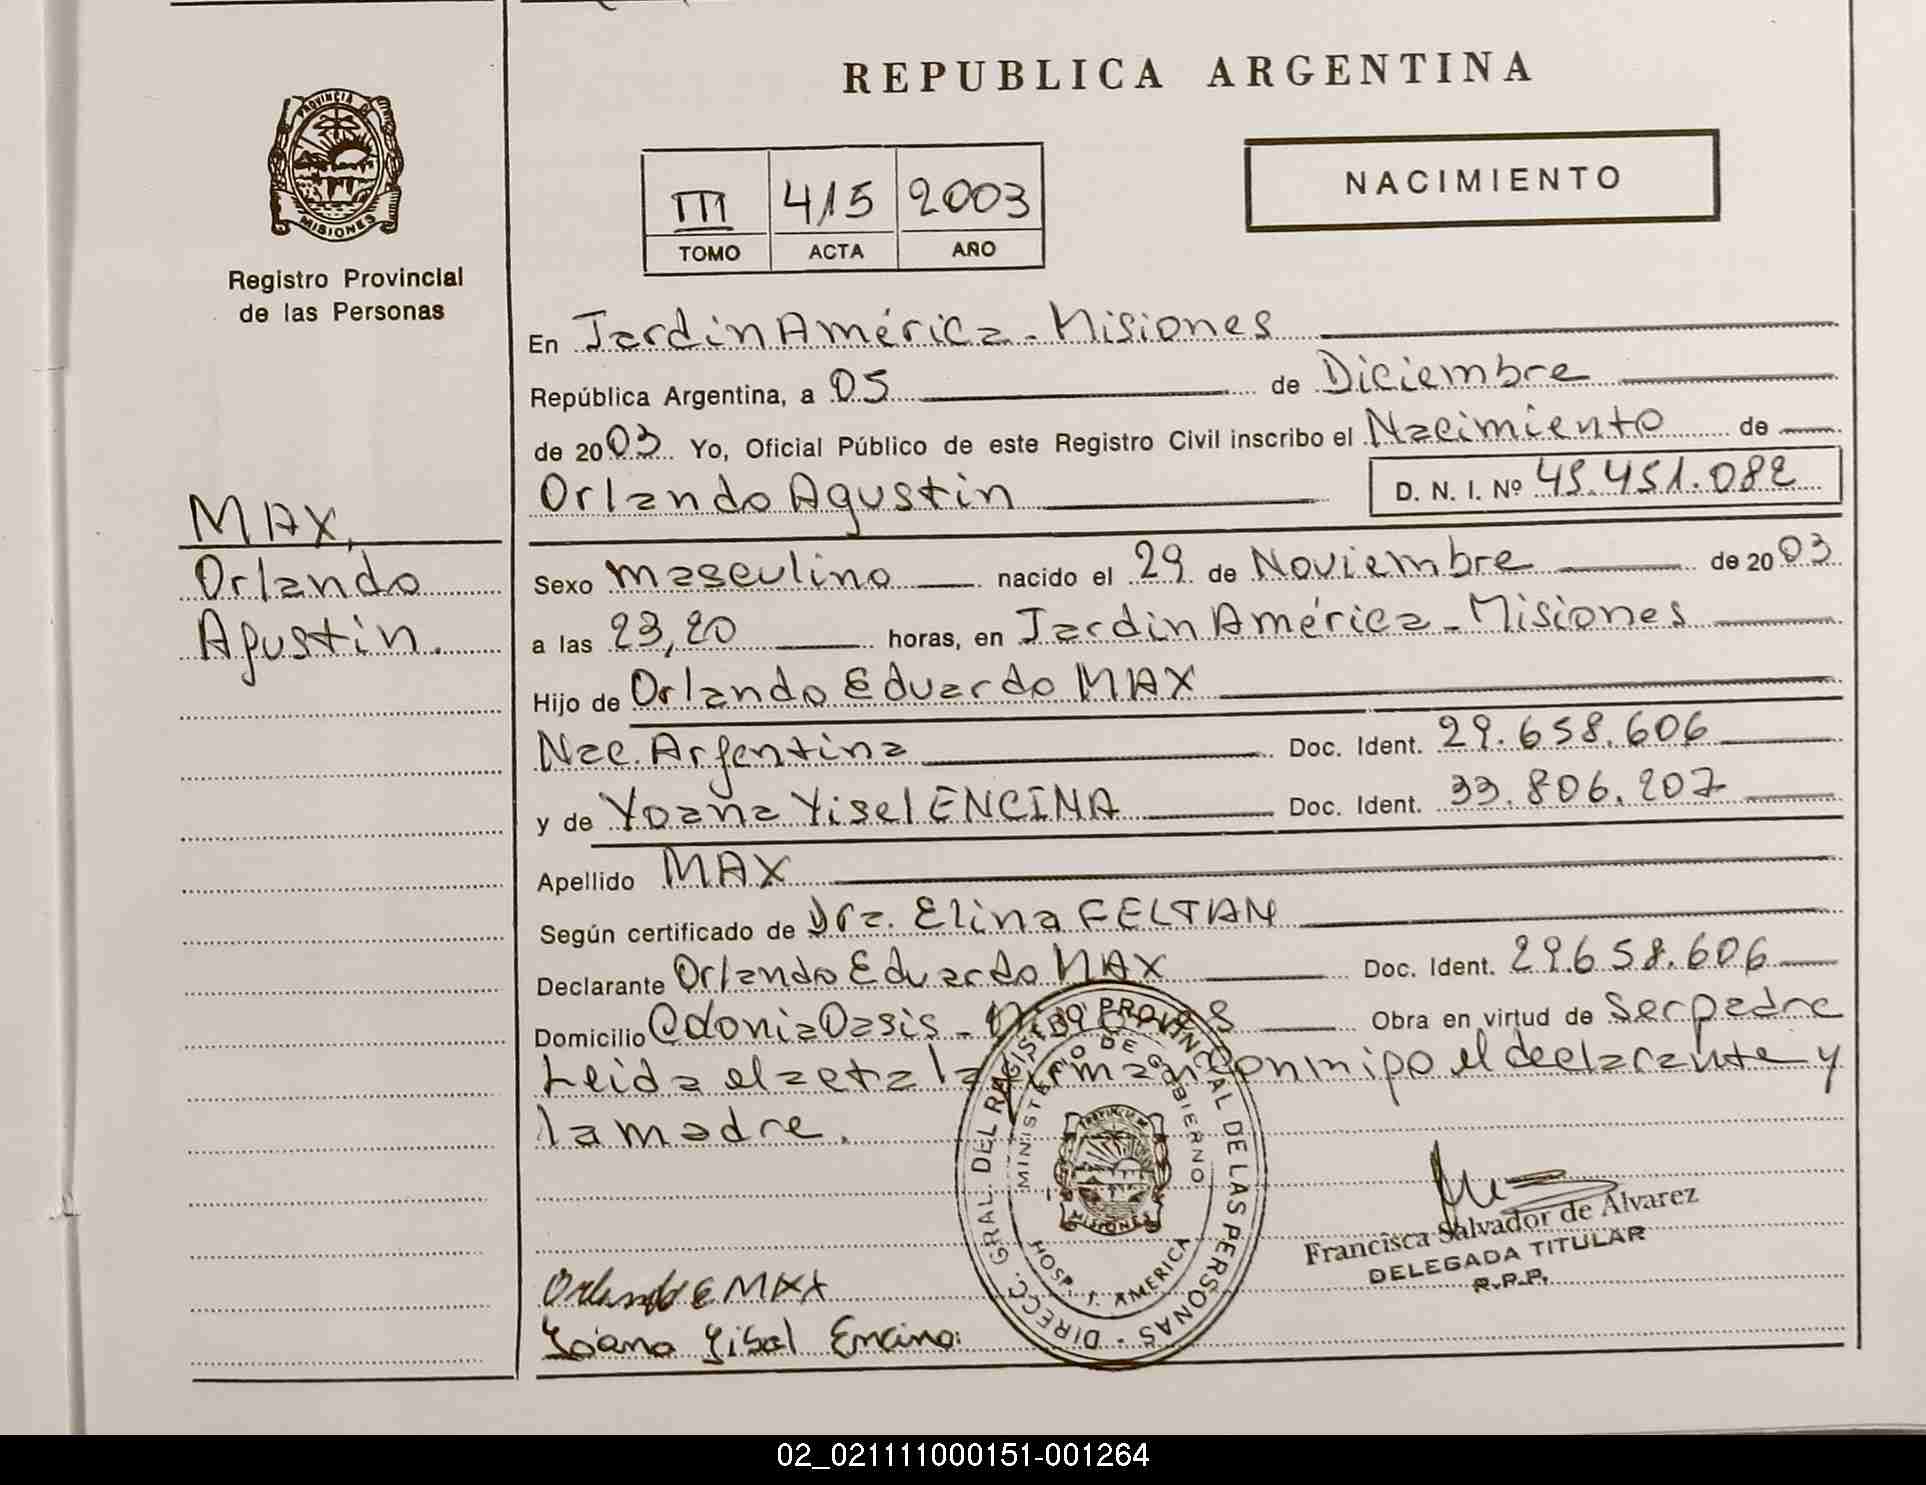 REPUBLICA ARGENTINA
PROVINCIA DE
MISIONES
Registro Provincial
de las Personas
III 415 2003
TOMO ACTA AÑO
NACIMIENTO
En Jardin América - Misiones
República Argentina, a 05 de Diciembre
de 2003 Yo, Oficial Público de este Registro Civil inscribo el Nacimiento de
Orlando Agustin D. N. I. Nº 45.451.082
MAX,
Orlando
Agustin.
Sexo masculino nacido el 29 de Noviembre de 2003
a las 23,20 horas, en Jardin América - Misiones
Hijo de Orlando Eduardo MAX
Nac. Argentina Doc. Ident. 29.658.606
y de Yoana Yisel ENCINA Doc. Ident. 33.806.207
Apellido MAX
Según certificado de Dra. Elina FELTAN
Declarante Orlando Eduardo MAX Doc. Ident. 29.658.606
Domicilio Colonia Oasis - Misiones Obra en virtud de Ser padre
Leida el acta la firman conmigo el declarante y
la madre.
DIRECC. GRAL. DEL REGISTRO PROVINCIAL DE LAS PERSONAS
MINISTERIO DE GOBIERNO
PROVINCIA DE
MISIONES
HOSP. J. AMERICA
Francisca Salvador de Alvarez
DELEGADA TITULAR
R.P.P.
Orlando E MAX
Yoana Yisel Encina
02_021111000151-001264